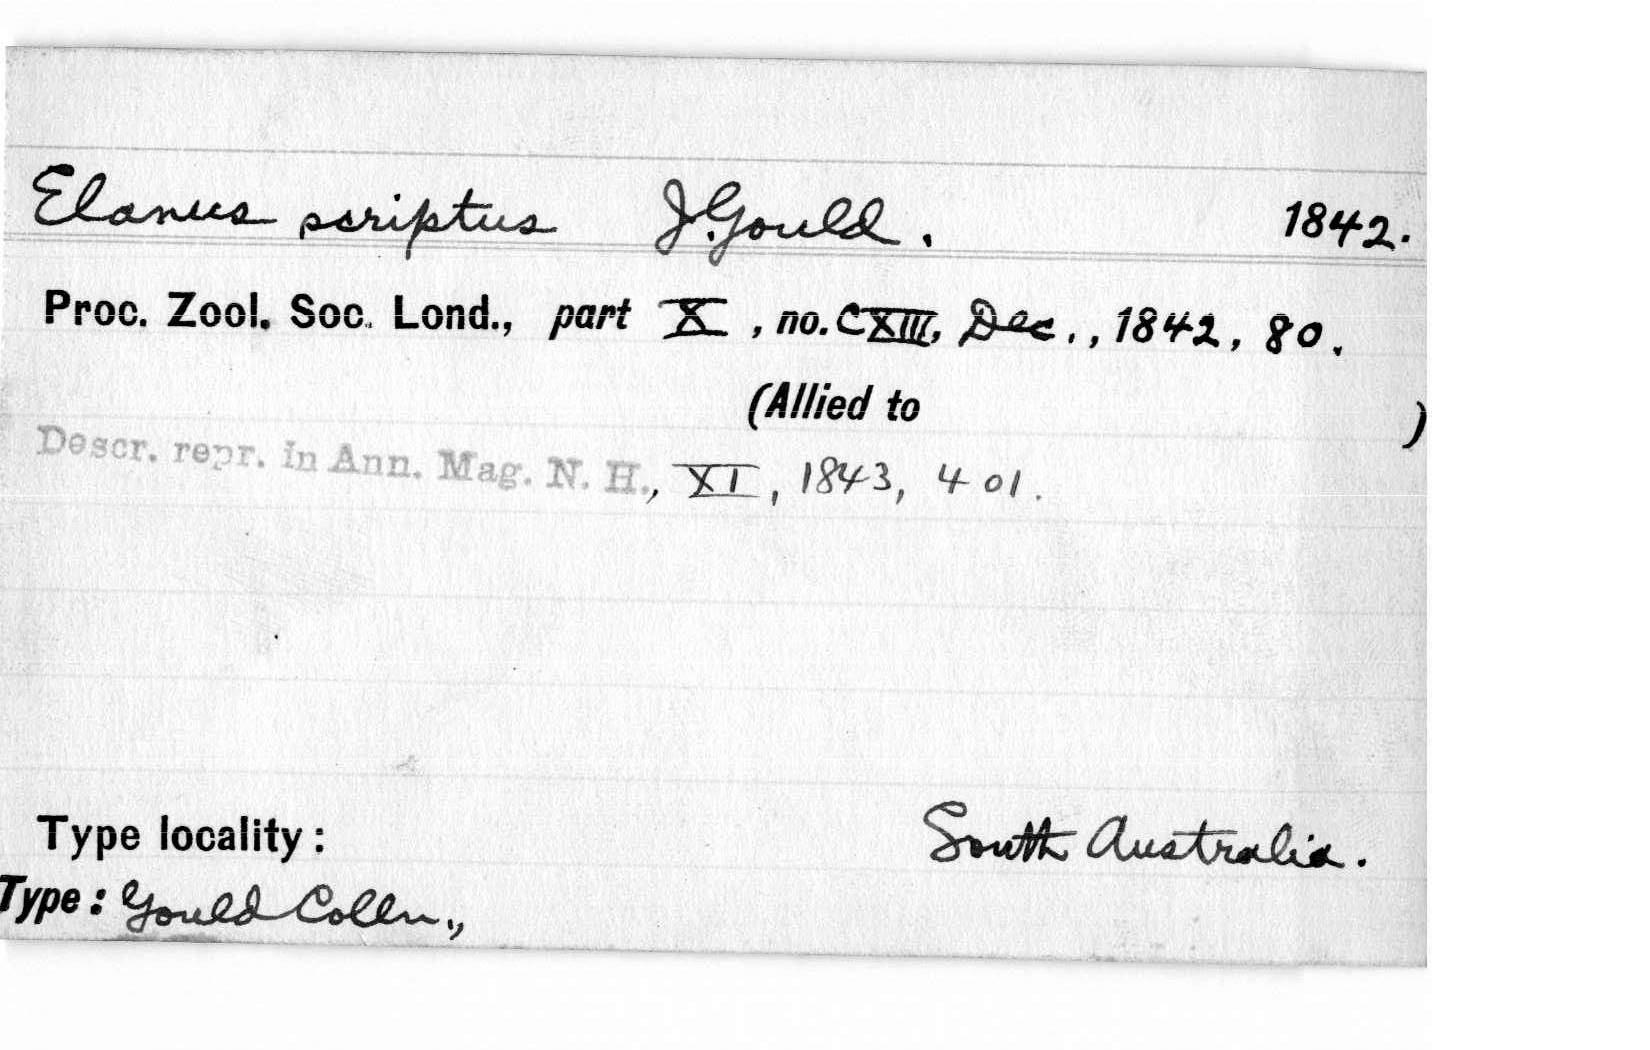 Elanus scriptus J. Gould. 1842.
Proc. Zool. Soc. Lond., part X, no. CXIII, Dec., 1842, 80.
(Allied to )
Descr. repr. in Ann. Mag. N. H., XI, 1843, 401.
Type locality: South Australia.
Type: Gould Colln.,